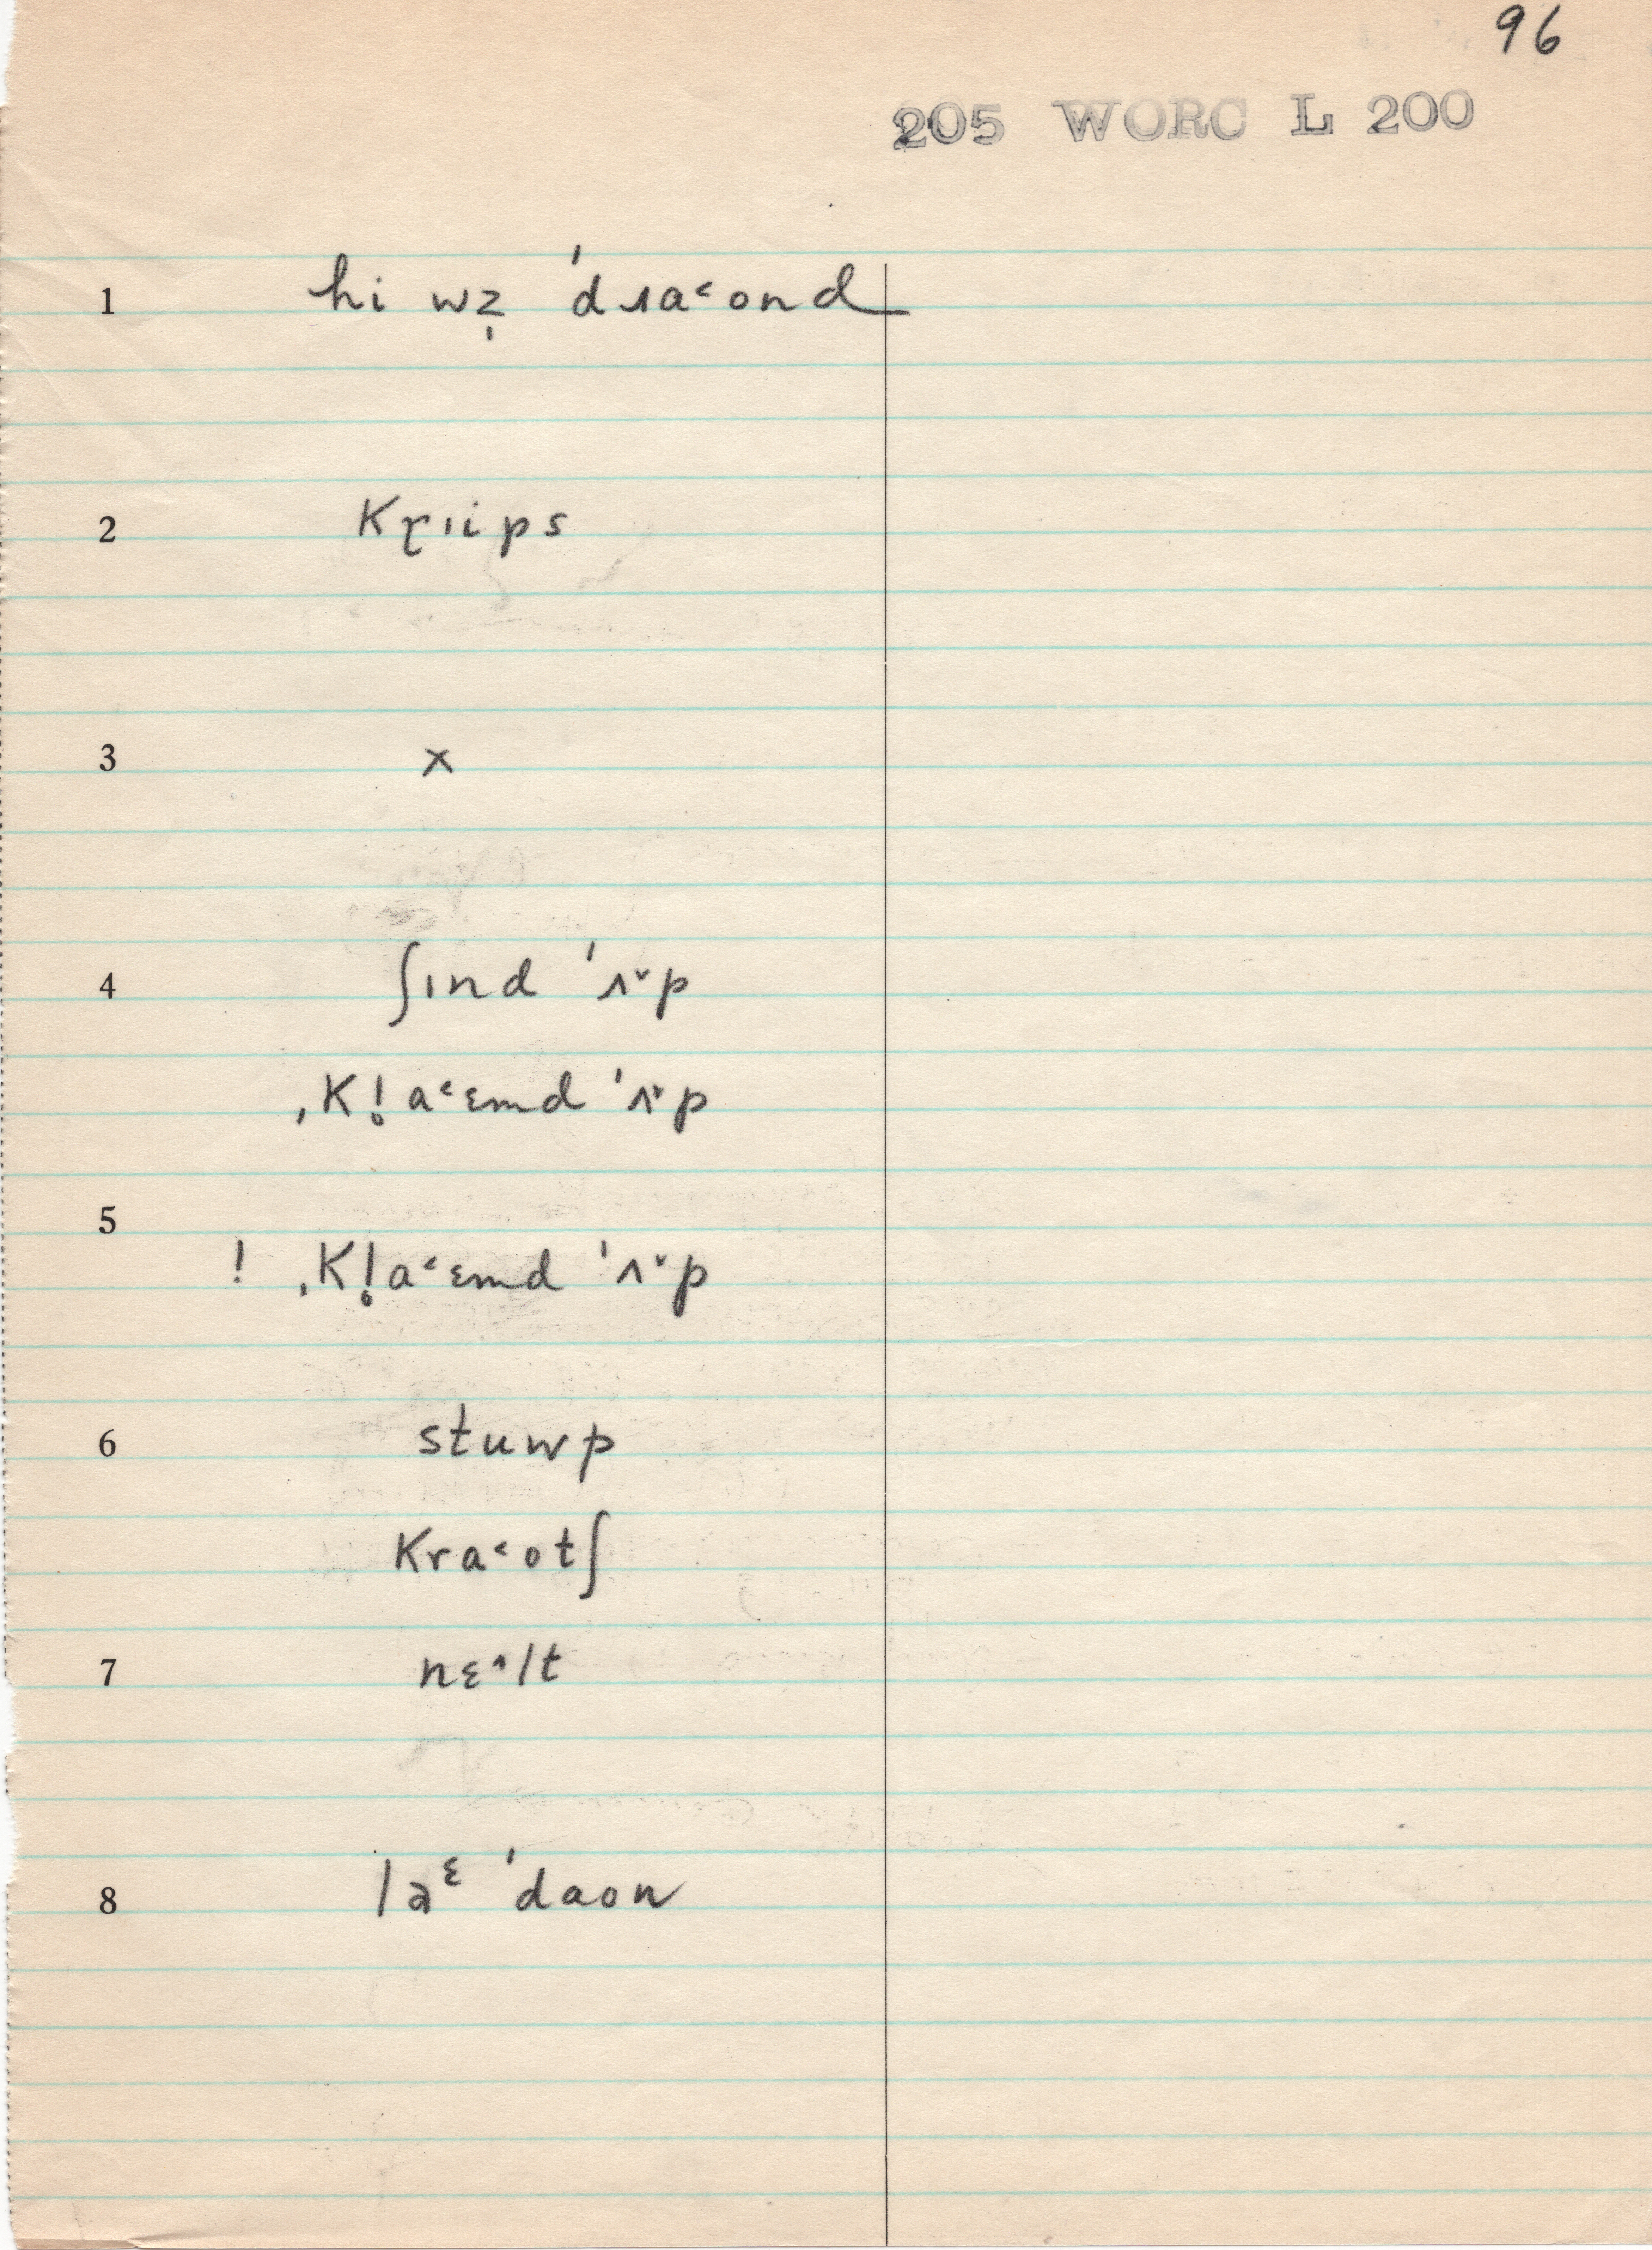 96
205 WORC L 200
1 hi wz̩ ˈdɹa˂ond
2 Kɽıips
3 x
4 ʃınd ˈʌ˅p
ˌKl̥a˂ɛmd ˈʌ˅p
5
! ˌKl̥a˂ɛmd ˈʌ˅p
6 stuwp
Kra˂otʃ
7 nɛ˄lt
8 laᵋ ˈdaon